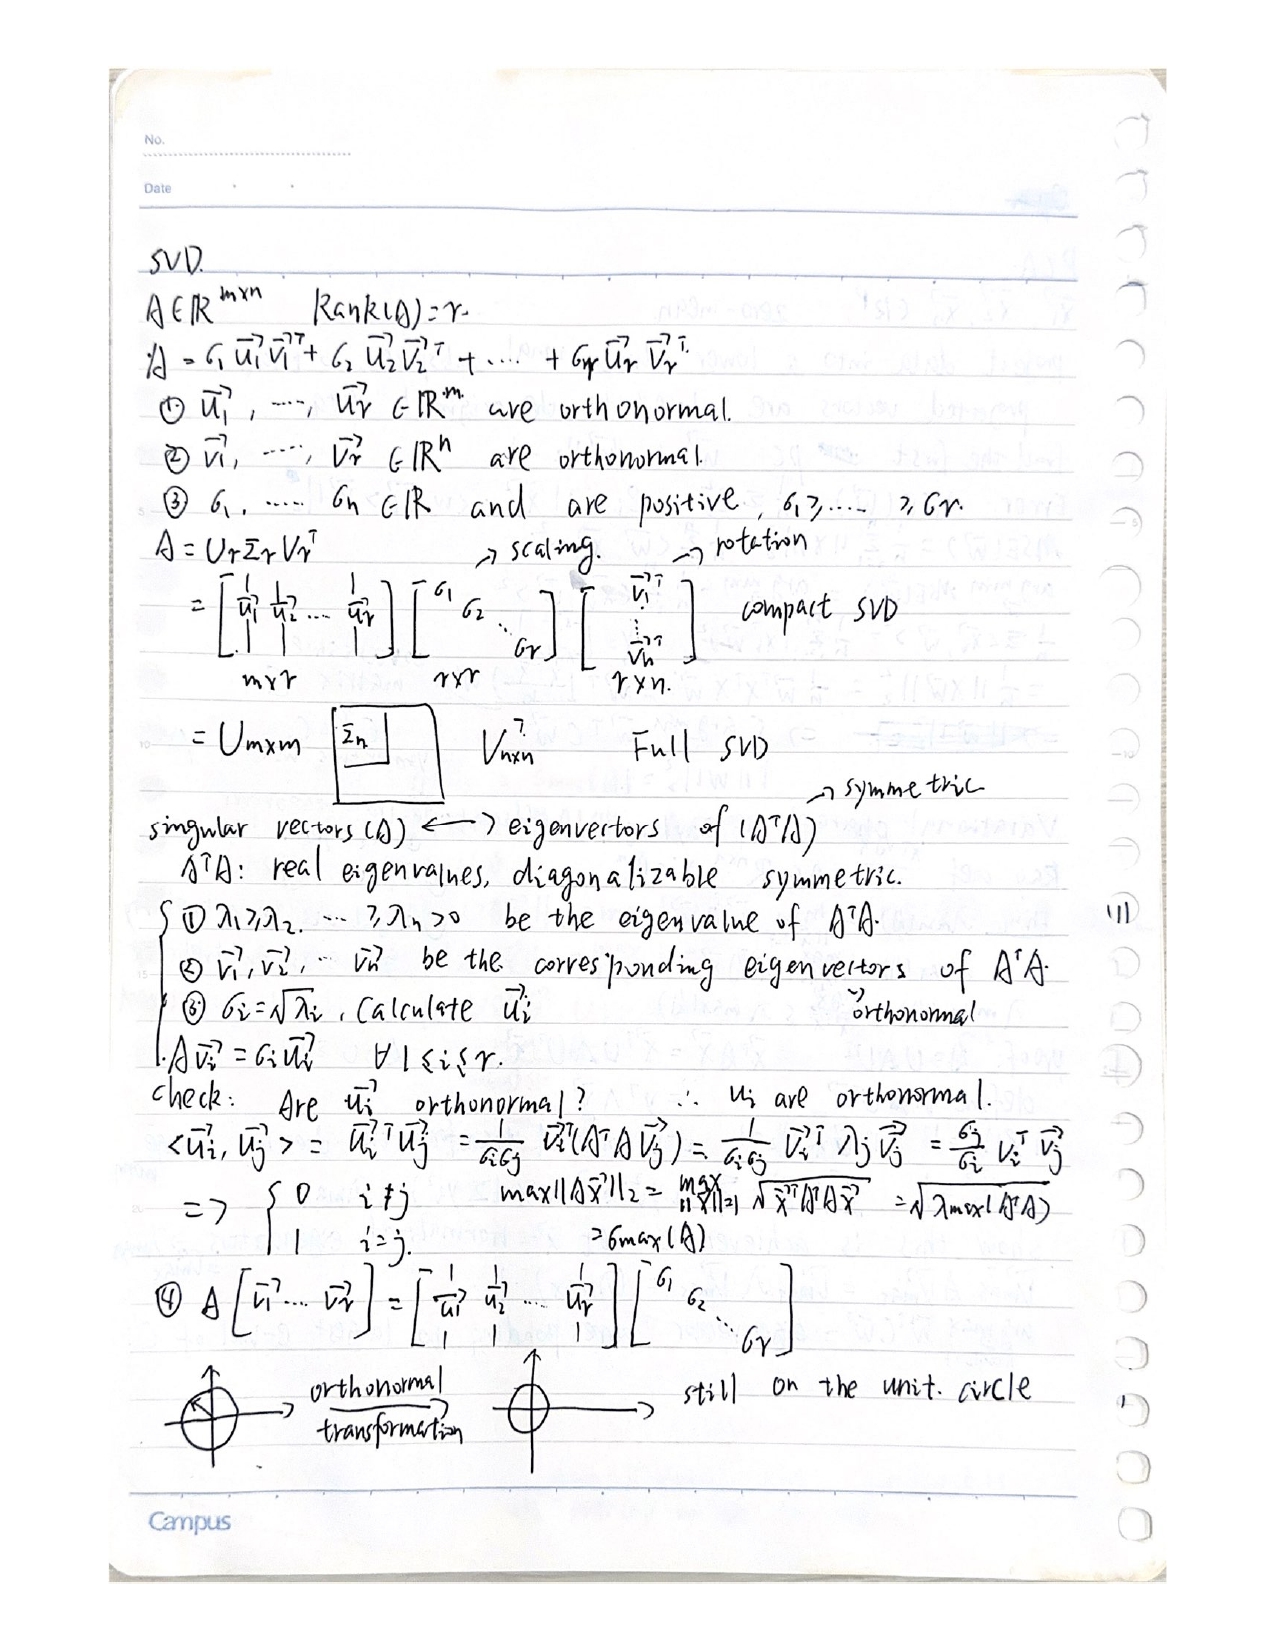 No.
Date
SVD.
A ∈ ℝ^{m×n}   Rank(A) = r.
A = σ₁ u⃗₁ v⃗₁ᵀ + σ₂ u⃗₂ v⃗₂ᵀ + .... + σᵣ u⃗ᵣ v⃗ᵣᵀ
① u⃗₁, ...., u⃗ᵣ ∈ ℝᵐ are orthonormal.
② v⃗₁, ...., v⃗ᵣ ∈ ℝⁿ are orthonormal.
③ σ₁, ..... σₙ ∈ ℝ and are positive, σ₁ ≥ .... ≥ σᵣ.
A = Uᵣ Σᵣ Vᵣᵀ   → scaling.   → rotation
= [u⃗₁ u⃗₂ ... u⃗ᵣ] [σ₁ σ₂ ... σᵣ] [v⃗₁ᵀ ⋮ v⃗ₙᵀ]   compact SVD
m×r   r×r   r×n.
= U_{m×m} [Σₙ] V_{n×n}ᵀ   Full SVD
→ symmetric
singular vectors (A) ⟷ eigenvectors of (AᵀA)
AᵀA: real eigenvalues, diagonalizable symmetric.
① λ₁ ≥ λ₂ ... ≥ λₙ > 0 be the eigenvalue of AᵀA.
② v⃗₁, v⃗₂, ... v⃗ₙ be the corresponding eigenvectors of AᵀA.
③ σᵢ = √λᵢ, Calculate u⃗ᵢ   orthonormal
A v⃗ᵢ = σᵢ u⃗ᵢ   ∀ 1 ≤ i ≤ r.
check: Are u⃗ᵢ orthonormal?   ∴ uᵢ are orthonormal.
<u⃗ᵢ, u⃗ⱼ> = u⃗ᵢᵀ u⃗ⱼ = 1/(σᵢσⱼ) v⃗ᵢᵀ(AᵀA v⃗ⱼ) = 1/(σᵢσⱼ) v⃗ᵢᵀ λⱼ v⃗ⱼ = σⱼ/σᵢ vᵢᵀ v⃗ⱼ
=> { 0 i ≠ j   max||Ax⃗||₂ = max_{||x⃗||=1} √(x⃗ᵀAᵀAx⃗) = √(λmax(AᵀA))
1 i = j.   = σmax(A)
④ A [v⃗₁ ... v⃗ᵣ] = [u⃗₁ u⃗₂ .... u⃗ᵣ] [σ₁ σ₂ ... σᵣ]
orthonormal transformation   still on the unit. circle
Campus